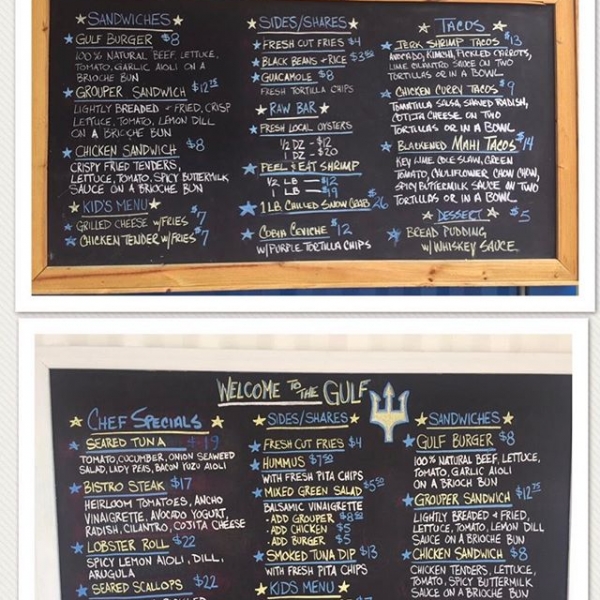 SANDWICHES
GULF BURGER $8
100% NATURAL BEEF, LETTUCE,
TOMATO, GARLIC AIOLI ON A
BRIOCHE BUN
GROUPER SANDWICH $12.75
LIGHTLY BREADED + FRIED, CRISP
LETTUCE, TOMATO, LEMON DILL
ON A BRIOCHE BUN
CHICKEN SANDWICH $8
CRISPY FRIED TENDERS,
LETTUCE, TOMATO, SPICY BUTTERMILK
SAUCE ON A BRIOCHE BUN
KID'S MENU
GRILLED CHEESE W/FRIES $7
CHICKEN TENDER W/FRIES $7
SIDES/SHARES
FRESH CUT FRIES $4
BLACK BEANS + RICE $3.50
GUACAMOLE $8
FRESH TORTILLA CHIPS
RAW BAR
FRESH LOCAL OYSTERS
1/2 DZ - $12
1 DZ - $20
PEEL & EAT SHRIMP
1/2 LB - $12
1 LB - $19
1 LB CHILLED SNOW CRAB $26
COBIA CEVICHE $12
W/PURPLE TORTILLA CHIPS
TACOS
JERK SHRIMP TACOS $13
AVOCADO, KIMCHI, PICKLED CARROTS,
LIME CILANTRO SAUCE ON TWO
TORTILLAS OR IN A BOWL
CHICKEN CURRY TACOS $9
TOMATILLA SALSA, SHAVED RADISH,
COTIJTA CHEESE ON TWO
TORTILLAS OR IN A BOWL
BLACKENED MAHI TACOS $14
KEY LIME COLE SLAW, GREEN
TOMATO, CAULIFLOWER CHOW CHOW,
SPICY BUTTERMILK SAUCE ON TWO
TORTILLAS OR IN A BOWL
DESSERT $5
BREAD PUDDING
W/ WHISKEY SAUCE
WELCOME TO THE GULF
CHEF SPECIALS
SEARED TUNA $19
TOMATO, CUCUMBER, ONION SEAWEED
SALAD, LADY PEAS, BACON YUZU AIOLI
BISTRO STEAK $17
HEIRLOOM TOMATOES, ANCHO
VINAIGRETTE, AVOCADO YOGURT,
RADISH, CILANTRO, COJITA CHEESE
LOBSTER ROLL $22
SPICY LEMON AIOLI, DILL,
ARUGULA
SEARED SCALLOPS $22
SIDES/SHARES
FRESH CUT FRIES $4
HUMMUS $7.50
WITH FRESH PITA CHIPS
MIXED GREEN SALAD $5.50
BALSAMIC VINAIGRETTE
- ADD GROUPER $8.50
- ADD CHICKEN $5
- ADD BURGER $5
SMOKED TUNA DIP $13
WITH FRESH PITA CHIPS
KIDS MENU
SANDWICHES
GULF BURGER $8
100% NATURAL BEEF, LETTUCE,
TOMATO, GARLIC AIOLI
ON A BRIOCH BUN
GROUPER SANDWICH $12.75
LIGHTLY BREADED & FRIED,
LETTUCE, TOMATO, LEMON DILL
SAUCE ON A BRIOCH BUN
CHICKEN SANDWICH $8
CHICKEN TENDERS, LETTUCE,
TOMATO, SPICY BUTTERMILK
SAUCE ON A BRIOCH BUN